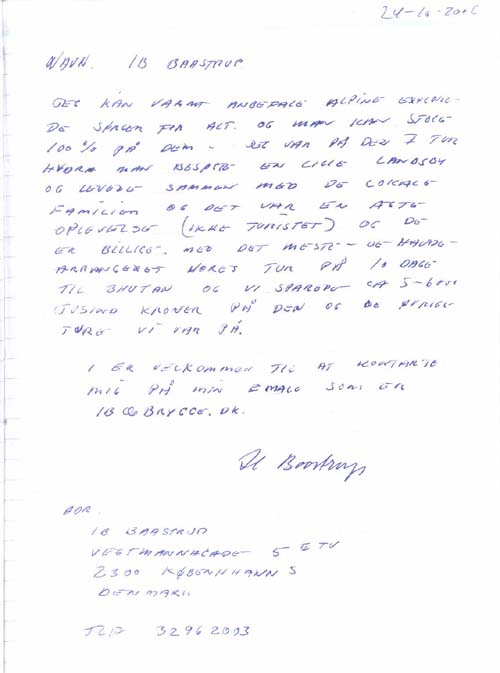 24-10-2006
NAVN. IB BAASTRUP
JEG KAN VARMT ANBEFALE ALPINE
DE SØRGER FOR ALT. OG MAN KAN STOLE
100 % PÅ DEM - JEG VAR PÅ DEN 7 TUR
HVOR MAN BESØGTE EN LILLE LANDSBY
OG LEVEDE SAMMEN MED DE LOKALE
FAMILIEN OG DET VAR EN ÆGTE
OPLEVELSE (IKKE TURISTET) OG DE
ER BILLIGE. MED DET MESTE - DE HAVDE
ARRANGERET VORES TUR PÅ 10 DAGE
TIL BHUTAN OG VI SPAREDE CA 5-6000
TUSIND KRONER PÅ DEN OG DE ØVRIGE
TURE VI VAR PÅ.
I ER VELKOMMEN TIL AT KONTAKTE
MIG PÅ MIN EMAIL SOM ER
IB@BRYGGE.DK.
Ib Baastrup
BOR.
IB BAASTRUP
VESTMANNAGADE 5 II TV
2300 KØBENHAVN S
DENMARK
TLF 32962003